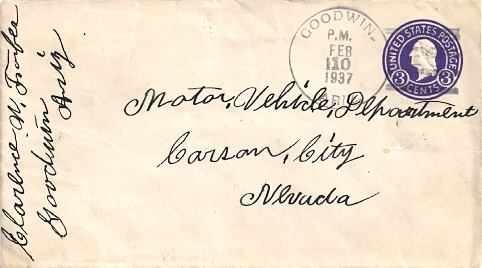 Clarence W,
Goodwin
Ariz
GOODWIN,
P.M.
FEB
10
1937
ARIZ.
UNITED STATES POSTAGE
3 CENTS 3
Motor, Vehicle, Department
Carson, City
Nevada